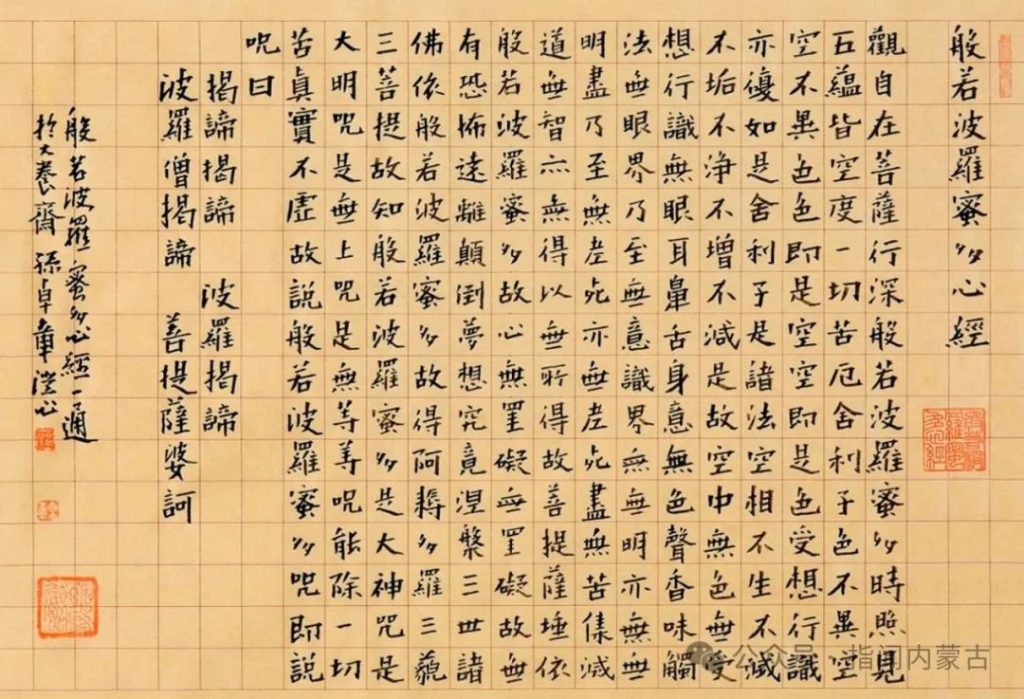 般若波羅蜜多心經
觀自在菩薩行深般若波羅蜜多時照見
五蘊皆空度一切苦厄舍利子色不異空
空不異色色即是空空即是色受想行識
亦復如是舍利子是諸法空相不生不滅
不垢不淨不增不減是故空中無色無受
想行識無眼耳鼻舌身意無色聲香味觸
法無眼界乃至無意識界無無明亦無無
明盡乃至無老死亦無老死盡無苦集滅
道無智亦無得以無所得故菩提薩埵依
般若波羅蜜多故心無罣礙無罣礙故無
有恐怖遠離顛倒夢想究竟涅槃三世諸
佛依般若波羅蜜多故得阿耨多羅三藐
三菩提故知般若波羅蜜多是大神咒是
大明咒是無上咒是無等等咒能除一切
苦真實不虛故說般若波羅蜜多咒即說
咒曰
揭諦揭諦 波羅揭諦
波羅僧揭諦 菩提薩婆訶
般若波羅蜜多心經一通
於大養齋孫卓章澄心
公众号 · 指闻内蒙古